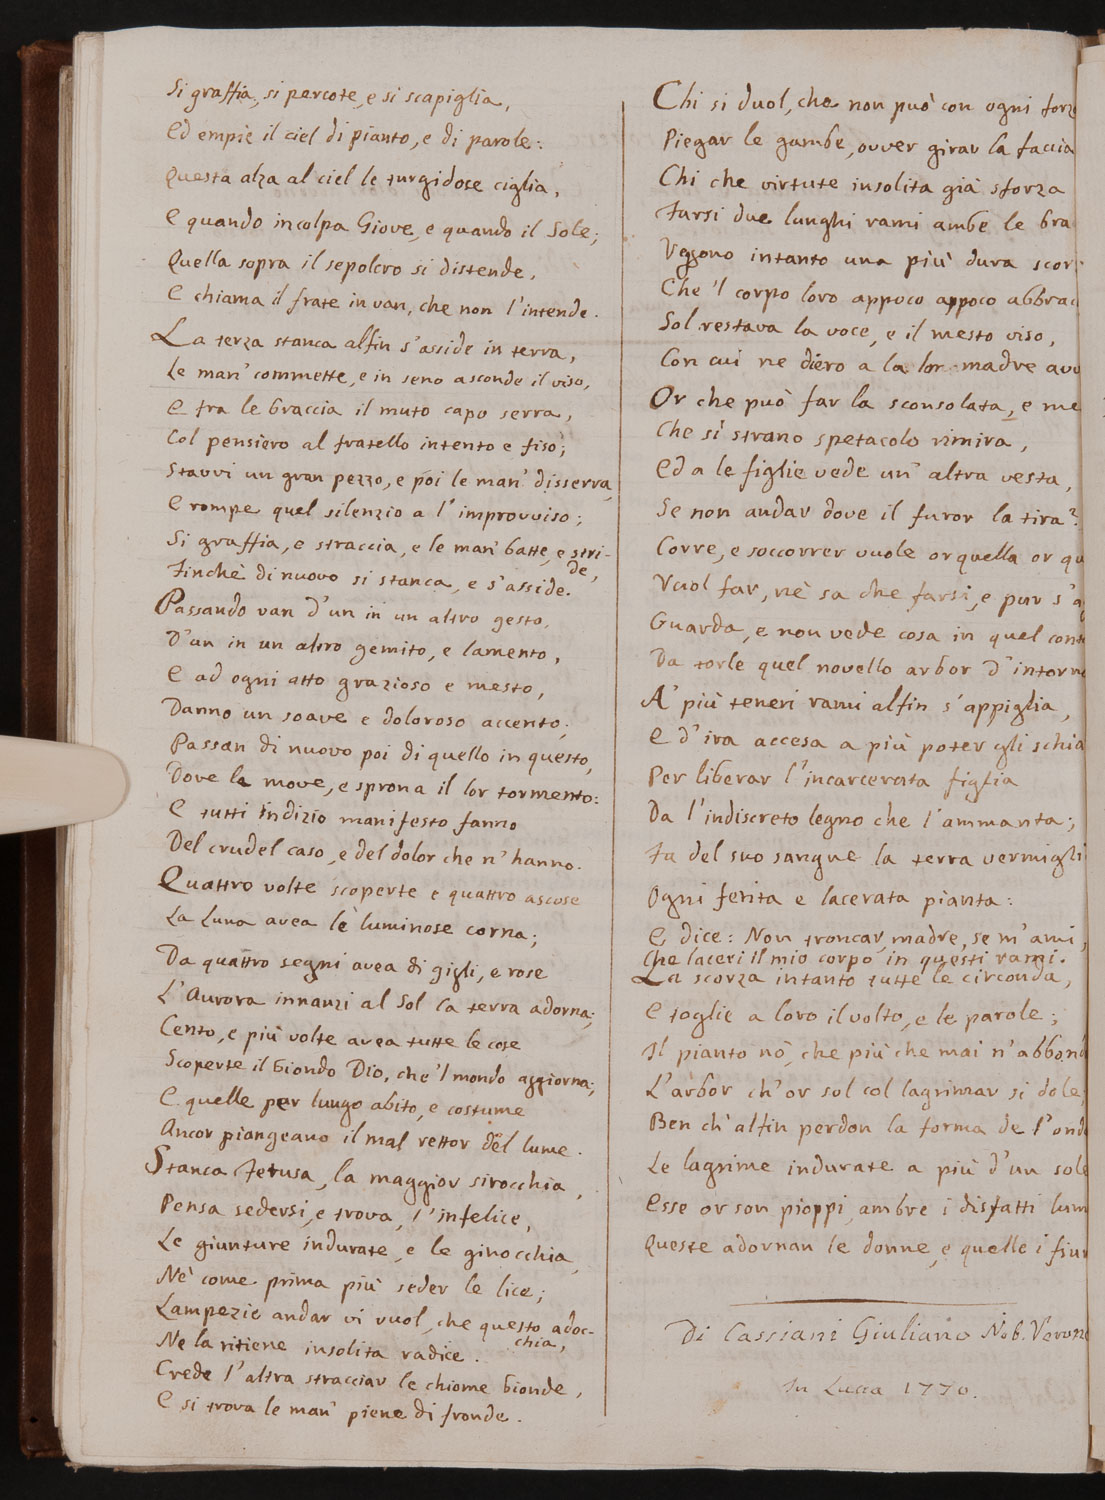 Si graffia, si percote, e si scapiglia,
Ed empie il ciel di pianto, e di parole:
Questa alza al ciel le turgidose ciglia,
E quando incolpa Giove, e quando il Sole;
Quella sopra il sepolcro si distende,
E chiama il frate in van, che non l'intende.
La terza stanca alfin s'asside in terra,
Le man' commette, e in seno asconde il viso,
E tra le braccia il muto capo serra,
Col pensiero al fratello intento e fiso;
Stavvi un gran pezzo, e poi le man' disserra,
E rompe quel silenzio a l'improvviso;
Si graffia, e straccia, e le man' batte, e stri-
de,
Finchè di nuovo si stanca, e s'asside.
Passando van d'un in un altro gesto,
D'un in un altro gemito, e lamento,
E ad ogni atto grazioso e mesto,
Danno un soave e doloroso accento;
Passan di nuovo poi di quello in questo,
Dove le move, e sprona il lor tormento:
E tutti indizio manifesto fanno
Del crudel caso, e del dolor che n'hanno.
Quattro volte scoperte e quattro ascose
La Luna avea le luminose corna;
Da quattro segni avea di gigli, e rose
L'Aurora innanzi al Sol la terra adorna;
Cento, e più volte avea tutte le cose
Scoperte il biondo Dio, che'l mondo aggiorna;
E quelle per lungo abito, e costume
Ancor piangeano il mal rettor del lume.
Stanca Fetusa, la maggior sirocchia,
Pensa sedersi, e trova, l'infelice,
Le giunture indurate, e le ginocchia,
Nè come prima più seder le lice;
Lampezie andar vi vuol, che questo adoc-
chia,
Ne la ritiene insolita radice.
Crede l'altra stracciar le chiome bionde,
E si trova le man' piene di fronde.
Chi si duol, che non può con ogni forz
Piegar le gambe, ovver girar la faccia
Chi che virtute insolita già sforza
Farsi due lunghi rami ambe le bra
Vegono intanto una più dura scor
Che'l corpo loro appoco appoco abbrac
Sol restava la voce, e il mesto viso,
Con cui ne diero a la lor madre avv
Or che può far la sconsolata, e me
Che sì strano spetacolo rimira,
Ed a le figlie vede un' altra vesta,
Se non andar dove il furor la tira?
Corre, e soccorrer vuole or quella or qu
Vuol far, nè sa che farsi, e pur s'a
Guarda, e non vede cosa in quel conto
Da torle quel novello arbor d'intorno
A' più teneri rami alfin s'appiglia,
E d'ira accesa a più poter gli schia
Per liberar l'incarcerata figlia
Da l'indiscreto legno che l'ammanta;
Fa del suo sangue la terra vermigli
Ogni ferita e lacerata pianta:
E dice: Non troncar, madre, se m'ami,
Che laceri il mio corpo in questi rami.
La scorza intanto tutte le circonda,
E toglie a loro il volto, e le parole;
Il pianto nò, che più che mai n'abbond
L'arbor ch'or sol col lagrimar si dole,
Ben ch'alfin perdon la forma de l'onde
Le lagrime indurate a più d'un sole
Esse or son pioppi, ambre i disfatti lum
Queste adornan le donne, e quelle i fium
Di Cassiani Giuliano Nob. Verone
In Lucca 1770.